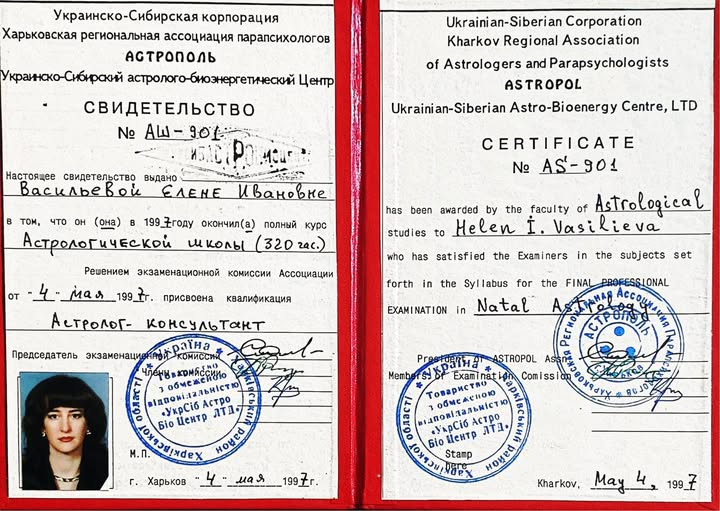 Украинско-Сибирская корпорация
Харьковская региональная ассоциация парапсихологов
АСТРОПОЛЬ
Украинско-Сибирский астролого-биоэнергетический Центр
СВИДЕТЕЛЬСТВО
№ АШ-901
Настоящее свидетельство выдано
Васильевой Елене Ивановне
в том, что он (она) в 1997году окончил(а) полный курс
Астрологической школы (320 час.)
Решением экзаменационной комиссии Ассоциации
от "4" мая 1997г. присвоена квалификация
Астролог-консультант
Председатель экзаменационной комиссии
Члены комиссии
Україна
Харківської області
Харківський район
Товариство
з обмеженою
відповідальністю
«УкрСіб Астро
Біо Центр ЛТД»
М.П.
г. Харьков "4" мая 1997г.
Ukrainian-Siberian Corporation
Kharkov Regional Association
of Astrologers and Parapsychologists
ASTROPOL
Ukrainian-Siberian Astro-Bioenergy Centre, LTD
CERTIFICATE
№ AS-901
has been awarded by the faculty of Astrological
studies to Helen I. Vasilieva
who has satisfied the Examiners in the subjects set
forth in the Syllabus for the FINAL PROFESSIONAL
EXAMINATION in Natal Astrology
President of ASTROPOL Assn
Members of Examination Comission
Региональная Ассоциация
АСТРОПОЛЬ
г. Харьков
Україна
Харківської області
Харківський район
Товариство
з обмеженою
відповідальністю
«УкрСіб Астро
Біо Центр ЛТД»
Stamp
here
Kharkov, May 4, 1997